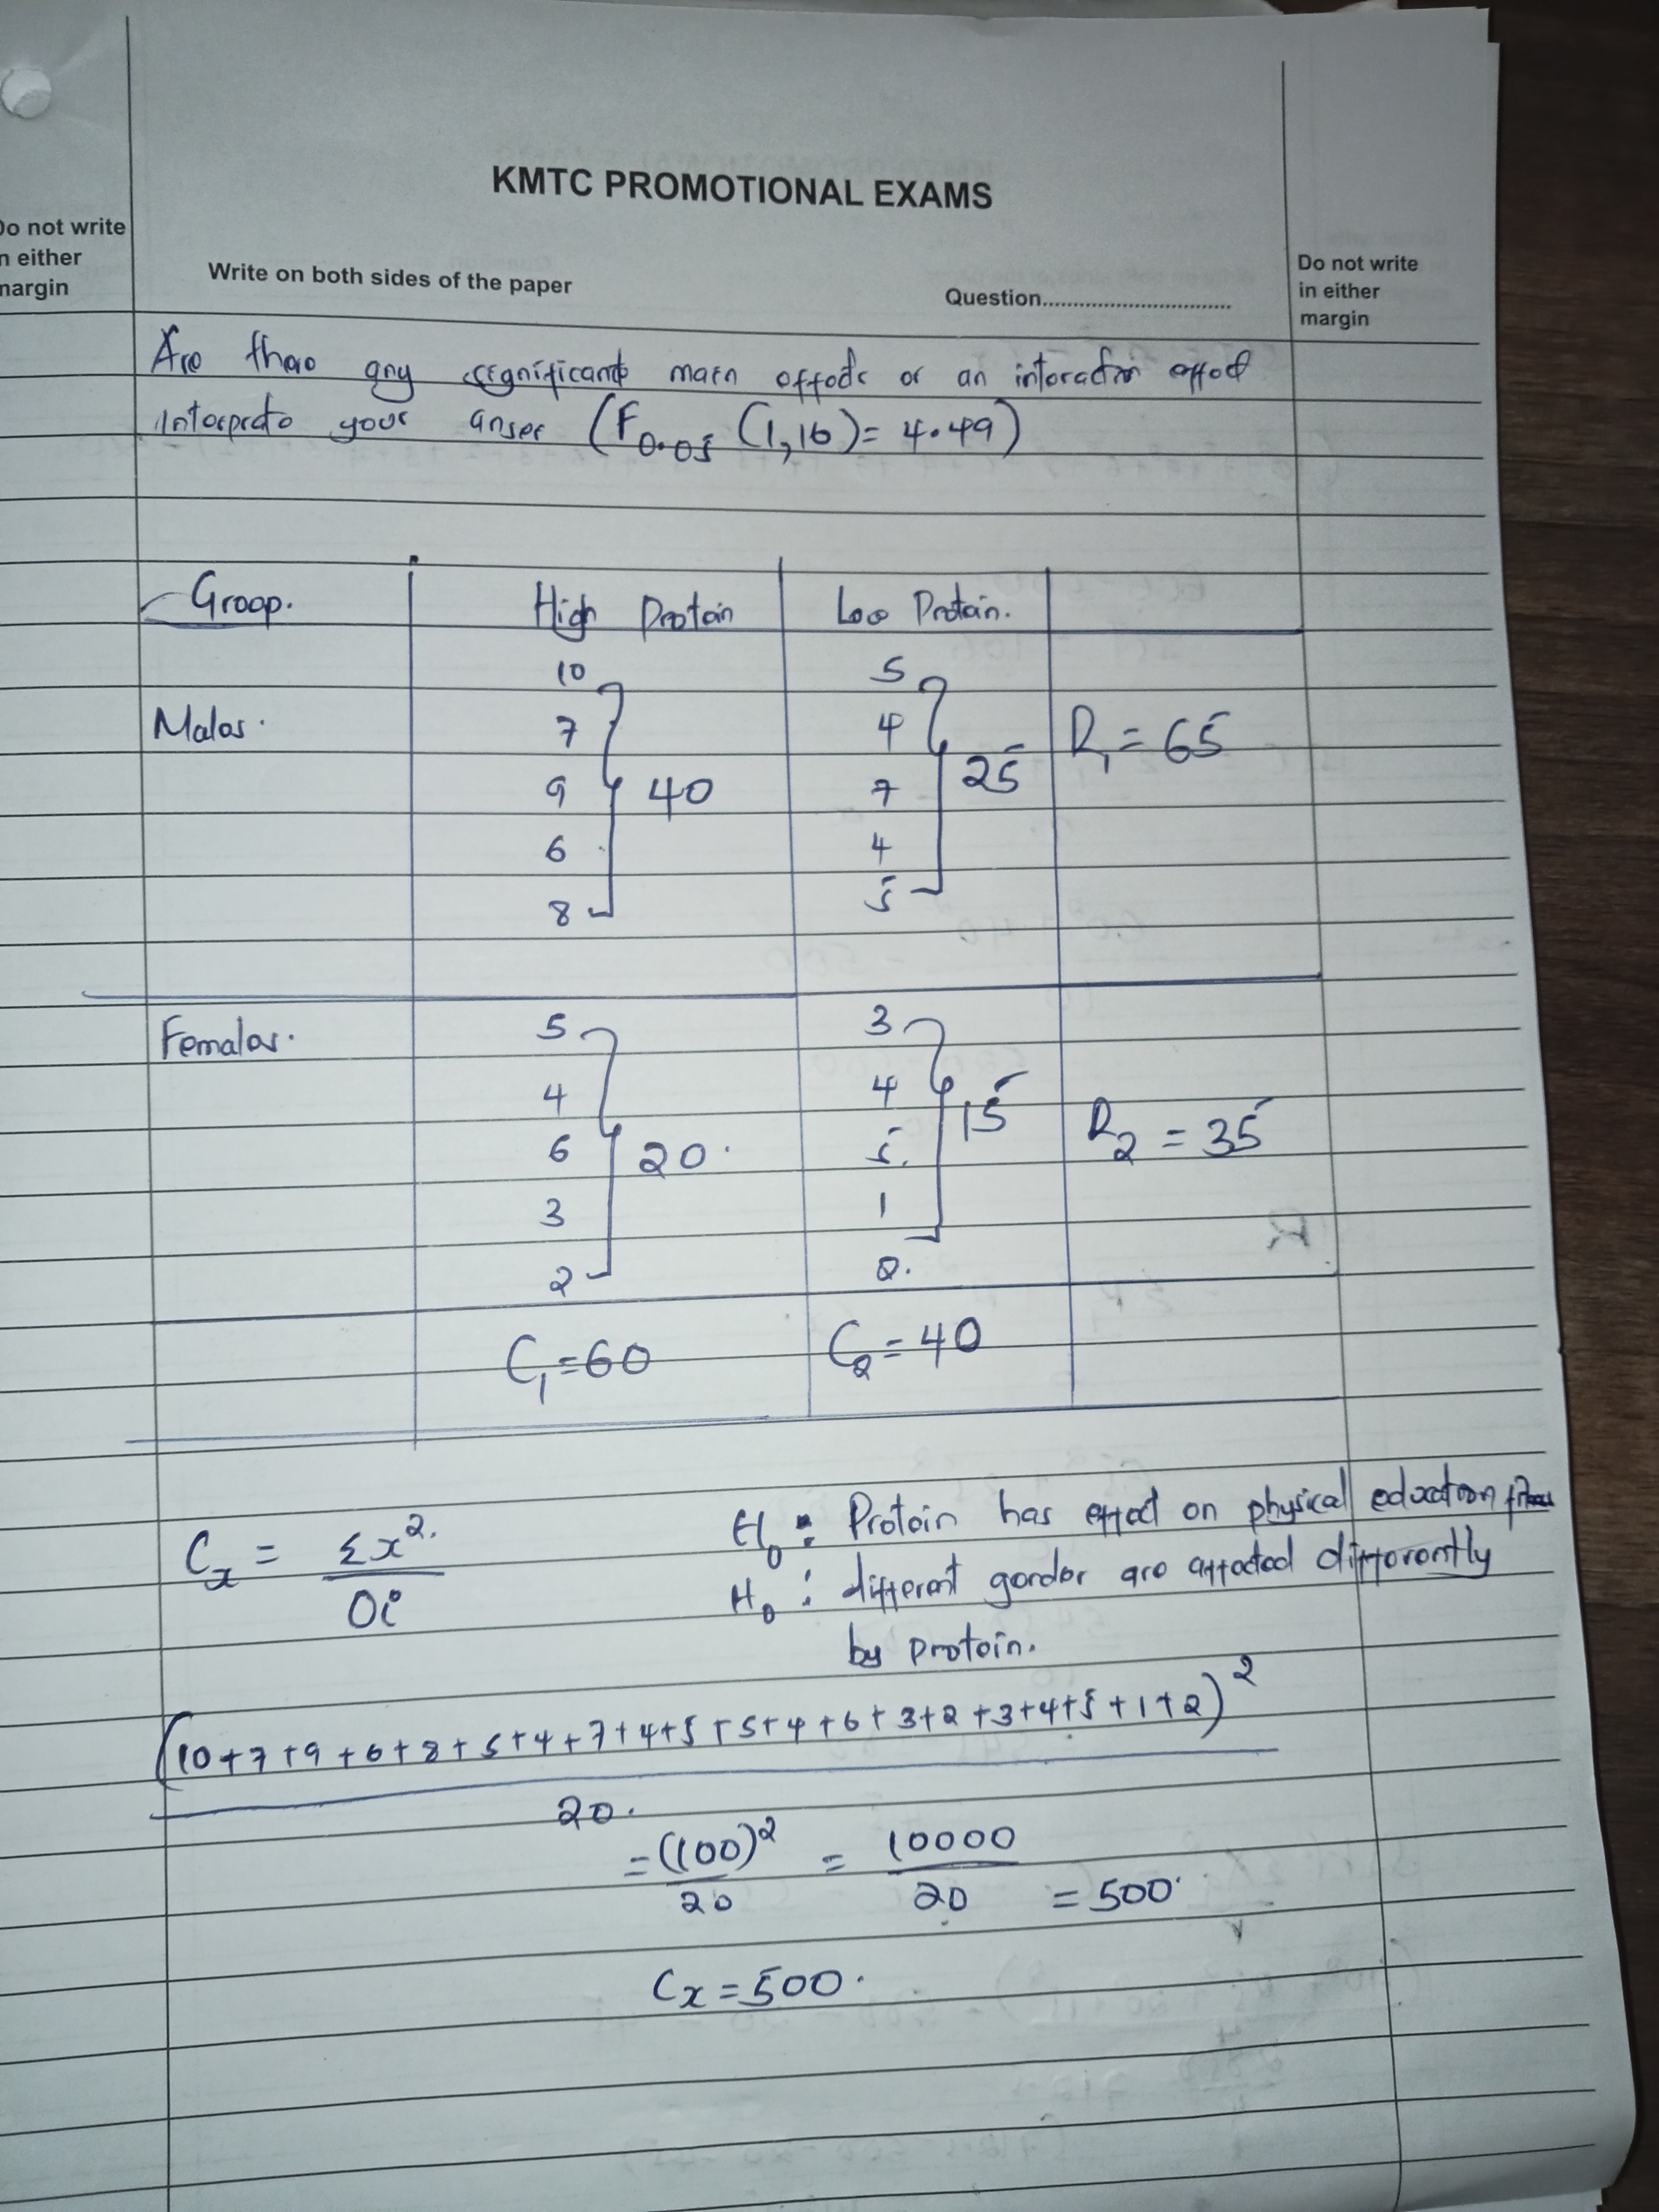 KMTC PROMOTIONAL EXAMS
Do not write
in either
margin
Write on both sides of the paper
Question..............................
Do not write
in either
margin
Are there any significant main effects or an interaction effect
Interprete your anser (F0.05 (1,16) = 4.49)
Group. High Protein Low Protein.
10 5
Males. 7 4 R1 = 65
9 40 7 25
6 4
8 5
Females. 5 3
4 4 15
6 20. 5. R2 = 35
3 1
2 2.
C1=60 C2=40
Cx = Σx². / 0i
H0 : Protein has effect on physical education
H0 : different gender are affected differently
by protein.
(10+7+9+6+8+5+4+7+4+5+5+4+6+3+2+3+4+5+1+2)²
20.
=(100)² / 20 = 10000 / 20 = 500.
Cx=500.